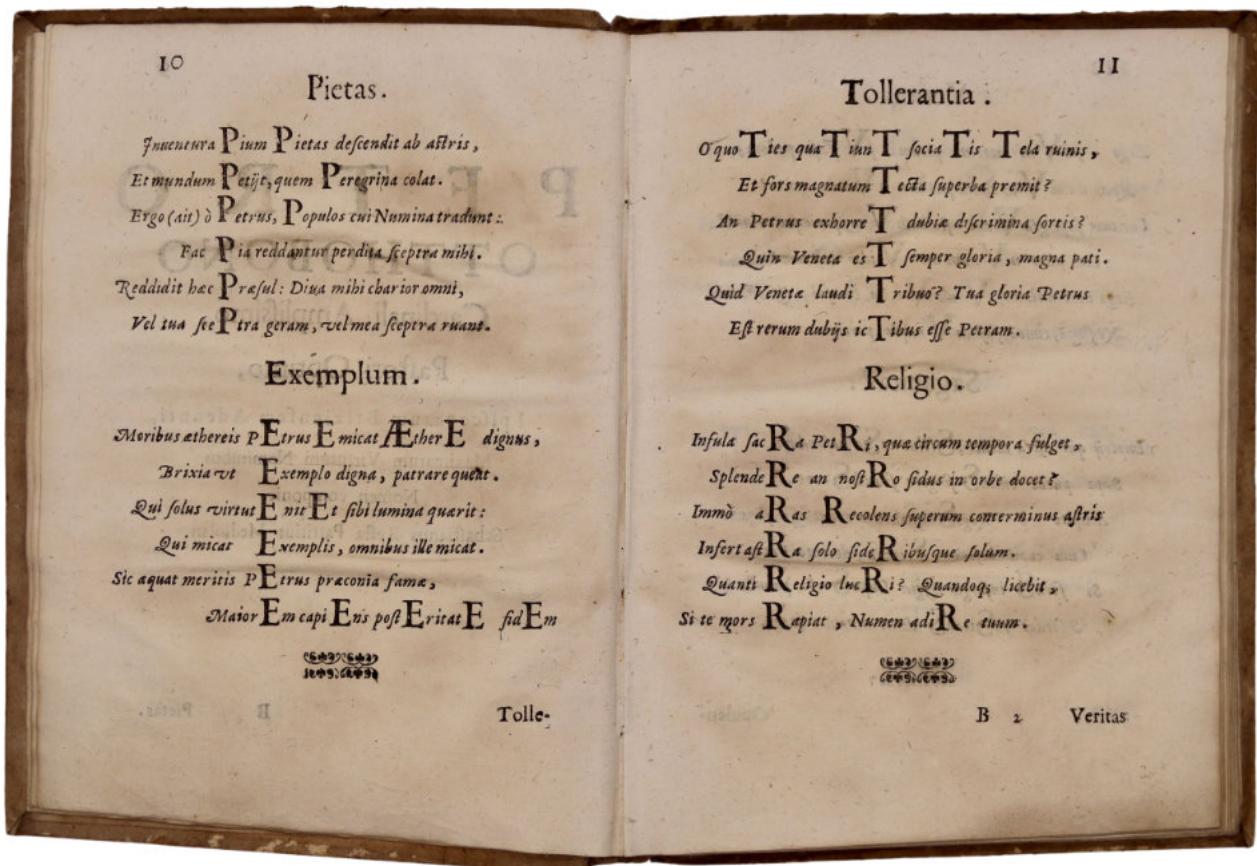 10
Pietas.
Inuentura Pium Pietas descendit ab astris,
Et mundum Petijt, quem Peregrina colat.
Ergo (ait) ò Petrus, Populos cui Numina tradunt:
Fac Pia reddantur perdita sceptra mihi.
Reddidit hæc Præsul: Diua mihi charior omni,
Vel tua scePtra geram, vel mea sceptra ruant.
Exemplum.
Moribus æthereis PEtrus Emicat ÆtherE dignus,
Brixia vt Exemplo digna, patrare queat.
Qui solus virtutE nitEt sibi lumina quærit:
Qui micat Exemplis, omnibus ille micat.
Sic æquat meritis PEtrus præconia famæ,
MaiorEm capiEns postEritatE fidEm
Tolle-
11
Tollerantia.
O quoTies quaTiunT sociaTis Tela ruinis,
Et fors magnatum Tecta superba premit?
An Petrus exhorreT dubiæ discrimina sortis?
Quin Veneta esT semper gloria, magna pati.
Quid Venetæ laudi Tribuo? Tua gloria Petrus
Est rerum dubijs icTibus esse Petram.
Religio.
Infula sacRa PetRi, quæ circum tempora fulget,
SplendeRe an nostRo sidus in orbe docet?
Immò aRas Recolens superum conterminus astris
Infert astRa solo sideRibusque solum.
Quanti Religio lucRi? Quandoq; licebit,
Si te mors Rapiat, Numen adiRe tuum.
B 2 Veritas